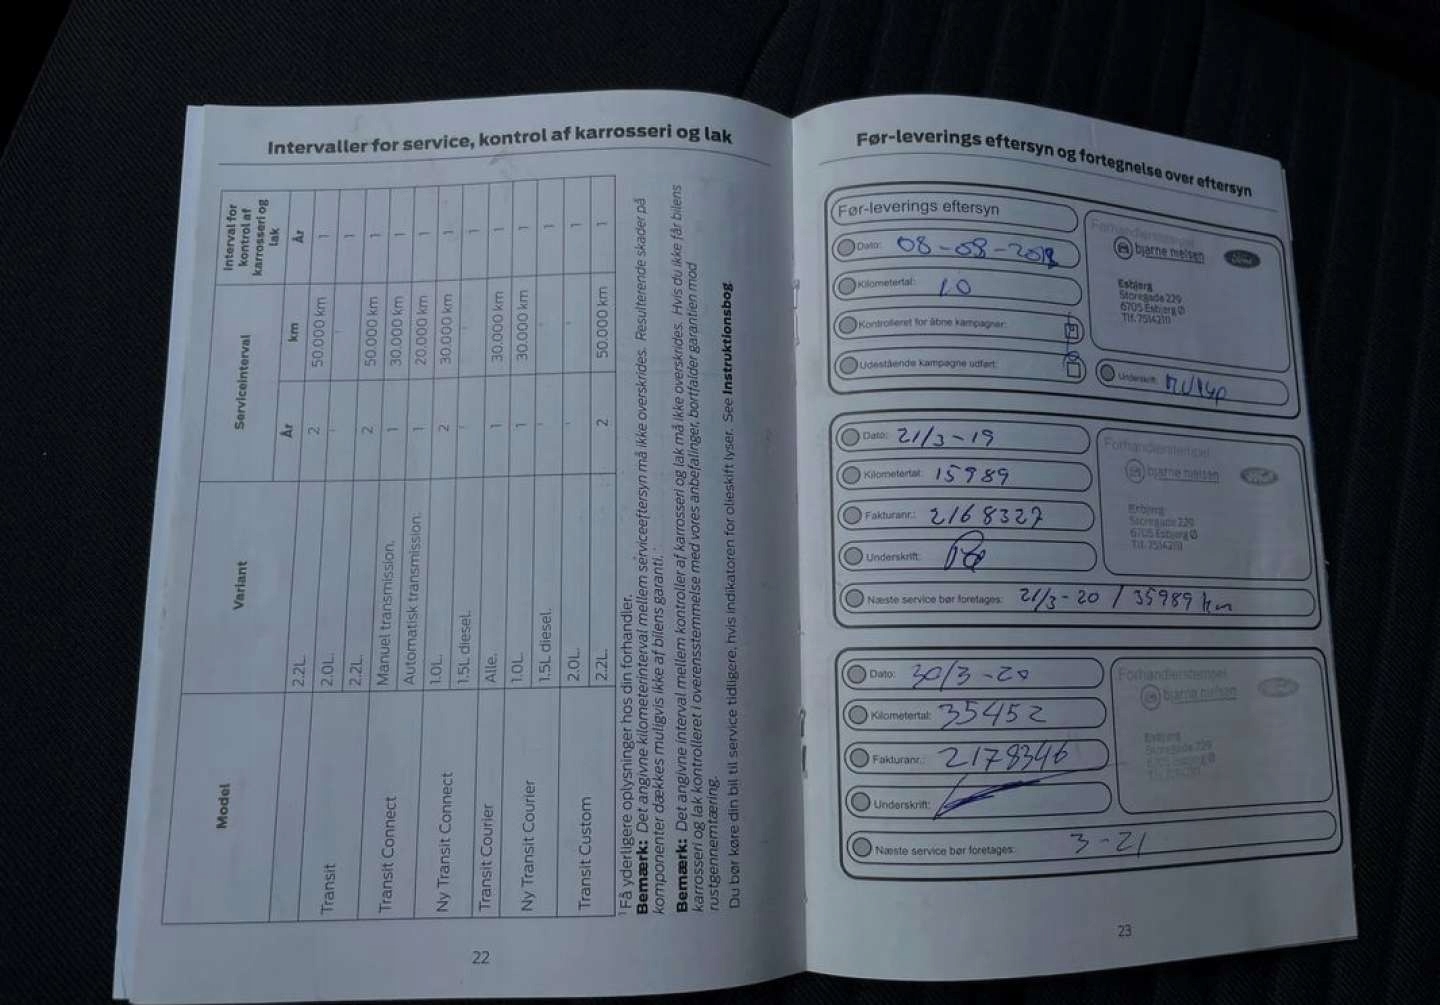 Intervaller for service, kontrol af karrosseri og lak
Model
Variant
Serviceinterval
Interval for kontrol af karrosseri og lak
År
km
År
Transit
2.2L.
2
50.000 km
1
2.0L.
1
1
2.2L.
2
50.000 km
1
Transit Connect
Manuel transmission.
1
30.000 km
1
Automatisk transmission.
1
20.000 km
1
Ny Transit Connect
1.0L.
2
30.000 km
1
1.5L diesel.
1
Transit Courier
Alle.
1
30.000 km
1
Ny Transit Courier
1.0L.
1
30.000 km
1
1.5L diesel.
1
Transit Custom
2.0L.
1
2.2L.
2
50.000 km
1
1 Få yderligere oplysninger hos din forhandler.
Bemærk: Det angivne kilometerinterval mellem serviceeftersyn må ikke overskrides. Resulterende skader på
komponenter dækkes muligvis ikke af bilens garanti.
Bemærk: Det angivne interval mellem kontroller af karrosseri og lak må ikke overskrides. Hvis du ikke får bilens
karrosseri og lak kontrolleret i overensstemmelse med vores anbefalinger, bortfalder garantien mod
rustgennemtæring.
Du bør køre din bil til service tidligere, hvis indikatoren for olieskift lyser. See Instruktionsbog.
22
Før-leverings eftersyn og fortegnelse over eftersyn
Før-leverings eftersyn
Dato: 08-08-2018
Kilometertal: 10
Kontrolleret for åbne kampagner:
Udestående kampagne udført:
Forhandlerstempel
bjarne nielsen
Ford
Esbjerg
Storegade 229
6705 Esbjerg Ø
Tlf. 7514211
Underskrift:
Dato: 21/3-19
Kilometertal: 15989
Fakturanr.: 2168327
Underskrift:
Forhandlerstempel
bjarne nielsen
Ford
Esbjerg
Storegade 229
6705 Esbjerg Ø
Tlf. 7514211
Næste service bør foretages: 21/3-20 / 35989 km
Dato: 30/3-20
Kilometertal: 35452
Fakturanr.: 2178346
Underskrift:
Forhandlerstempel
bjarne nielsen
Esbjerg
Storegade 229
6705 Esbjerg Ø
Næste service bør foretages: 3-21
23